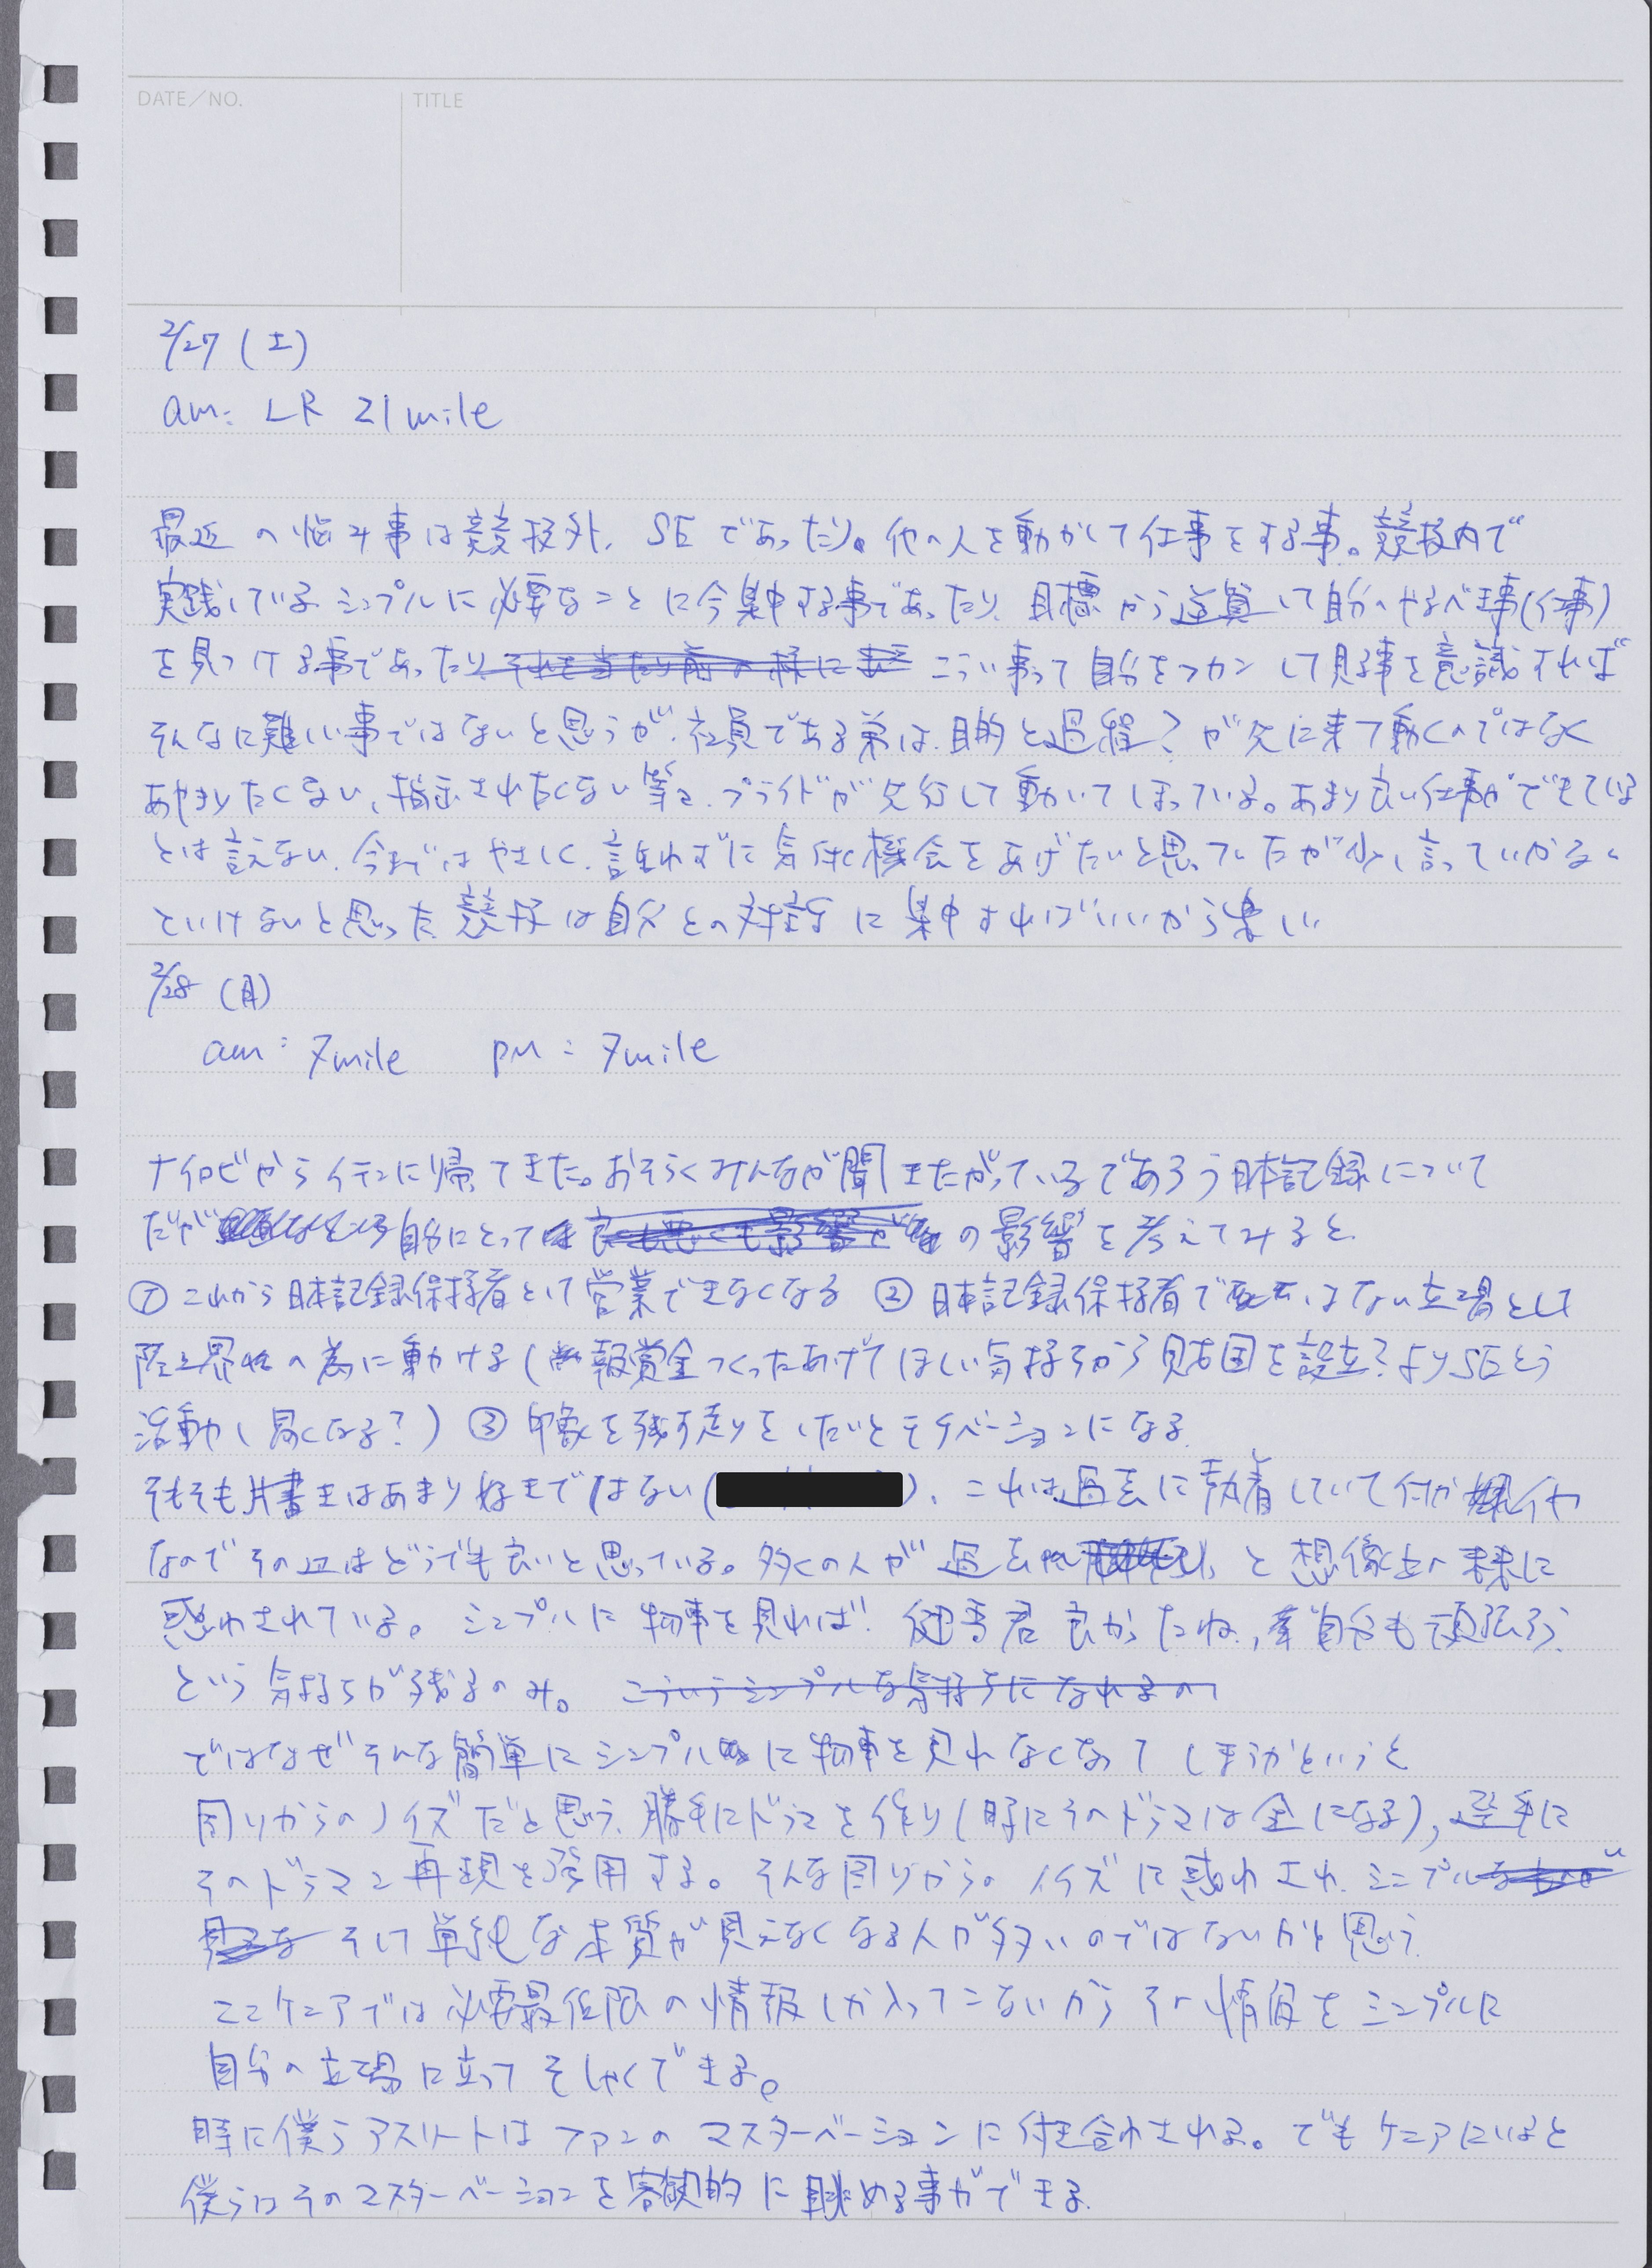 DATE/NO.
TITLE
2/27 (土)
am: LR 21mile
最近の悩み事は競技外、SEであったり。他の人を動かして仕事をする事。競技内で
実践しているシンプルに必要なことに今集中する事であったり、目標から逆算して自分のやるべき事(仕事)
を見つける事であったり こうい事って自分をフカンして見る事を意識すれば
そんなに難しい事ではないと思うが、社員である弟は、目的と過程?が先に来て動くのではなく
あやまりたくない、指示されたくない等、プライドが先行して動いてしまっている。あまり良い仕事ができている
とは言えない。今まではやさしく、言われずに気付く機会をあげたいと思っていたが少し言っていかない
といけないと思った。競技は自分との対話に集中すればいいから楽しい
2/28 (月)
am: 7mile pm: 7mile
ナイロビからイテンに帰ってきた。おそらくみんなが聞きたがっているであろう日本記録について
だが 自分にとって の影響を考えてみると、
① これから日本記録保持者として営業できなくなる ② 日本記録保持者ではない立場として
陸上界の為に動ける(報賞金つくったあげてほしい気持ちから財団を設立?よりSEとう
活動し易くなる?) ③ 印象を残す走りをしたいとモチベーションになる。
そもそも片書きはあまり好きではない( )、これは過去に執着していて何かイヤ
なのでその辺はどうでも良いと思っている。多くの人が過去 と想像上の未来に
惑わされている。シンプルに物事を見れば、健吾君良かったね、自分も頑張ろう、
という気持ちが残るのみ。こういうシンプルな気持ちになれるの
ではなぜそんな簡単にシンプルに物事を見れなくなってしまうかというと
周りからのノイズだと思う。勝手にドラマを作り(時にそのドラマは金になる)、選手に
そのドラマの再現を強用する。そんな周りからのノイズに惑わされ、シンプル
そして単純な本質が見えなくなる人が多いのではないかと思う。
ここケニアでは必要最低限の情報しか入ってこないからその情報をシンプルに
自分の立場に立ってそしゃくできる。
時に僕らアスリートはファンのマスターベーションに付き合わされる。でもケニアにいると
僕らはそのマスターベーションを客観的に眺める事ができる。